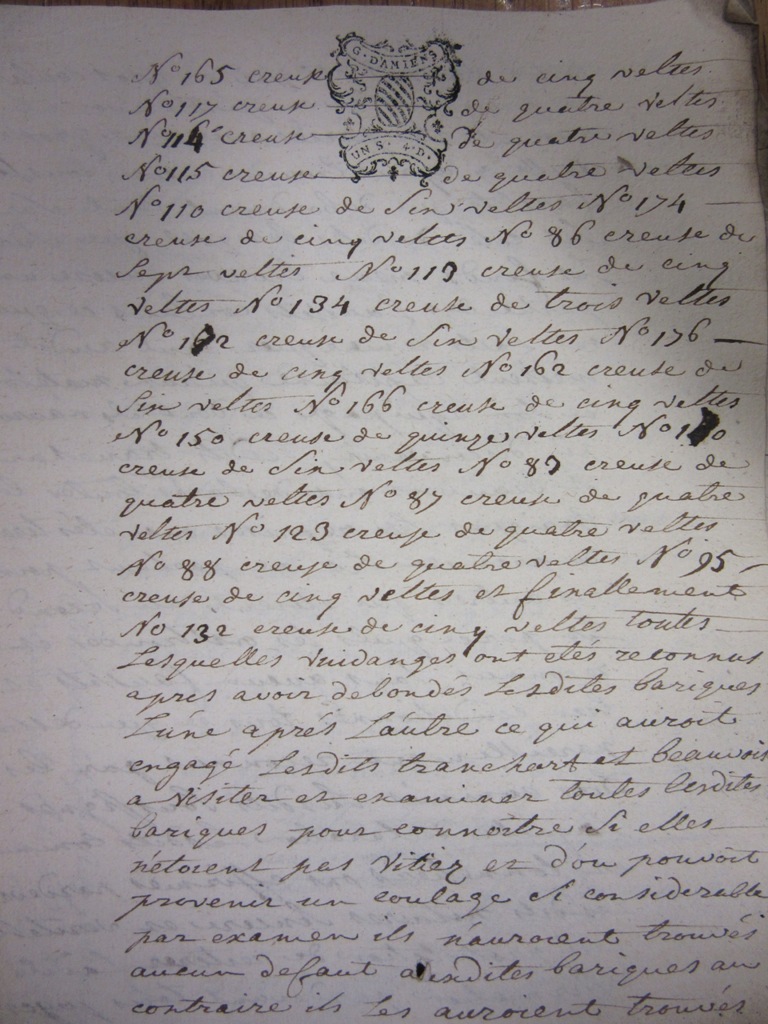 G. DAMIENS
UN S. 4. D.
No 165 creuse de cinq veltes
No 117 creuse de quatre veltes
No 114 creuse de quatre veltes
No 115 creuse de quatre veltes
No 110 creuse de Six veltes No 174
creuse de cinq veltes No 86 creuse de
Sept veltes No 113 creuse de cinq
veltes No 134 creuse de trois veltes
No creuse de Six veltes No 176
creuse de cinq veltes No 162 creuse de
Six veltes No 166 creuse de cinq veltes
No 150 creuse de quinze veltes No
creuse de Six veltes No creuse de
quatre veltes No 87 creuse de quatre
veltes No 123 creuse de quatre veltes
No 88 creuse de quatre veltes No 95
creuse de cinq veltes et finallement
No 132 creuse de cinq veltes toutes
Lesquelles vuidanges ont etés reconnus
apres avoir debondés Lesdites bariques
L'une aprés L'autre ce qui auroit
engagé Lesdits tranchart et beauvois
a visiter et examiner toutes lesdites
bariques pour connoitre Si elles
n'etoient pas vitiez et d'ou pouvoit
provenir un coulage Si considerable
par examen ils n'auroient trouvés
aucun defaut auxdites bariques au
contraire ils les auroient trouvés